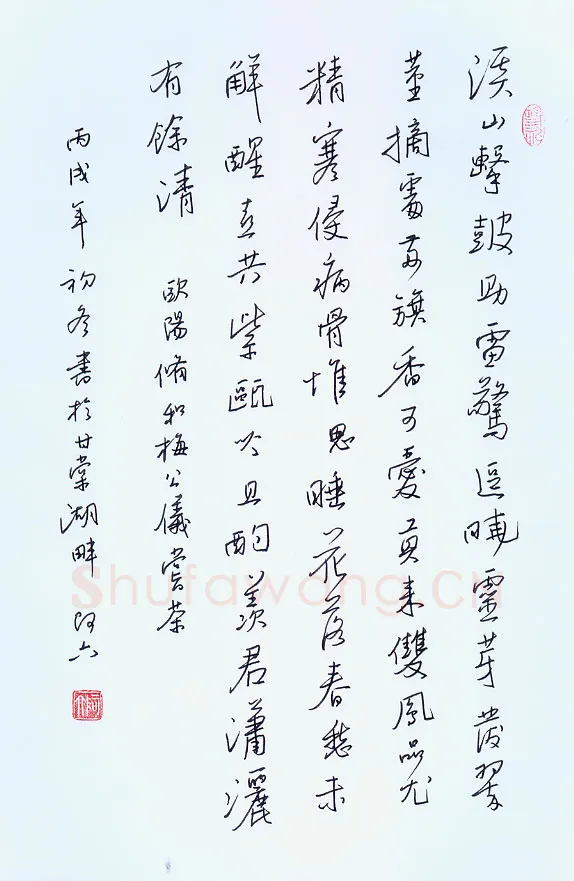 溪山擊鼓助雷驚逗曉靈芽發翠
莖摘處兩旗香可愛貢來雙鳳品尤
精寒侵病骨惟思睡花落春愁未
解醒喜共紫甌吟且酌羨君瀟灑
有餘清 歐陽脩和梅公儀嘗茶
丙戌年初冬書於甘棠湖畔 阿六
Shufawang.cn